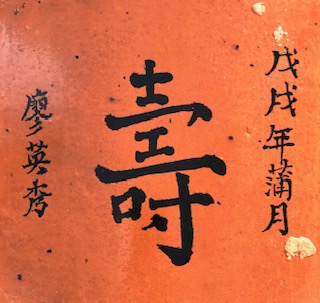 戊戌年蒲月
壽
廖英秀